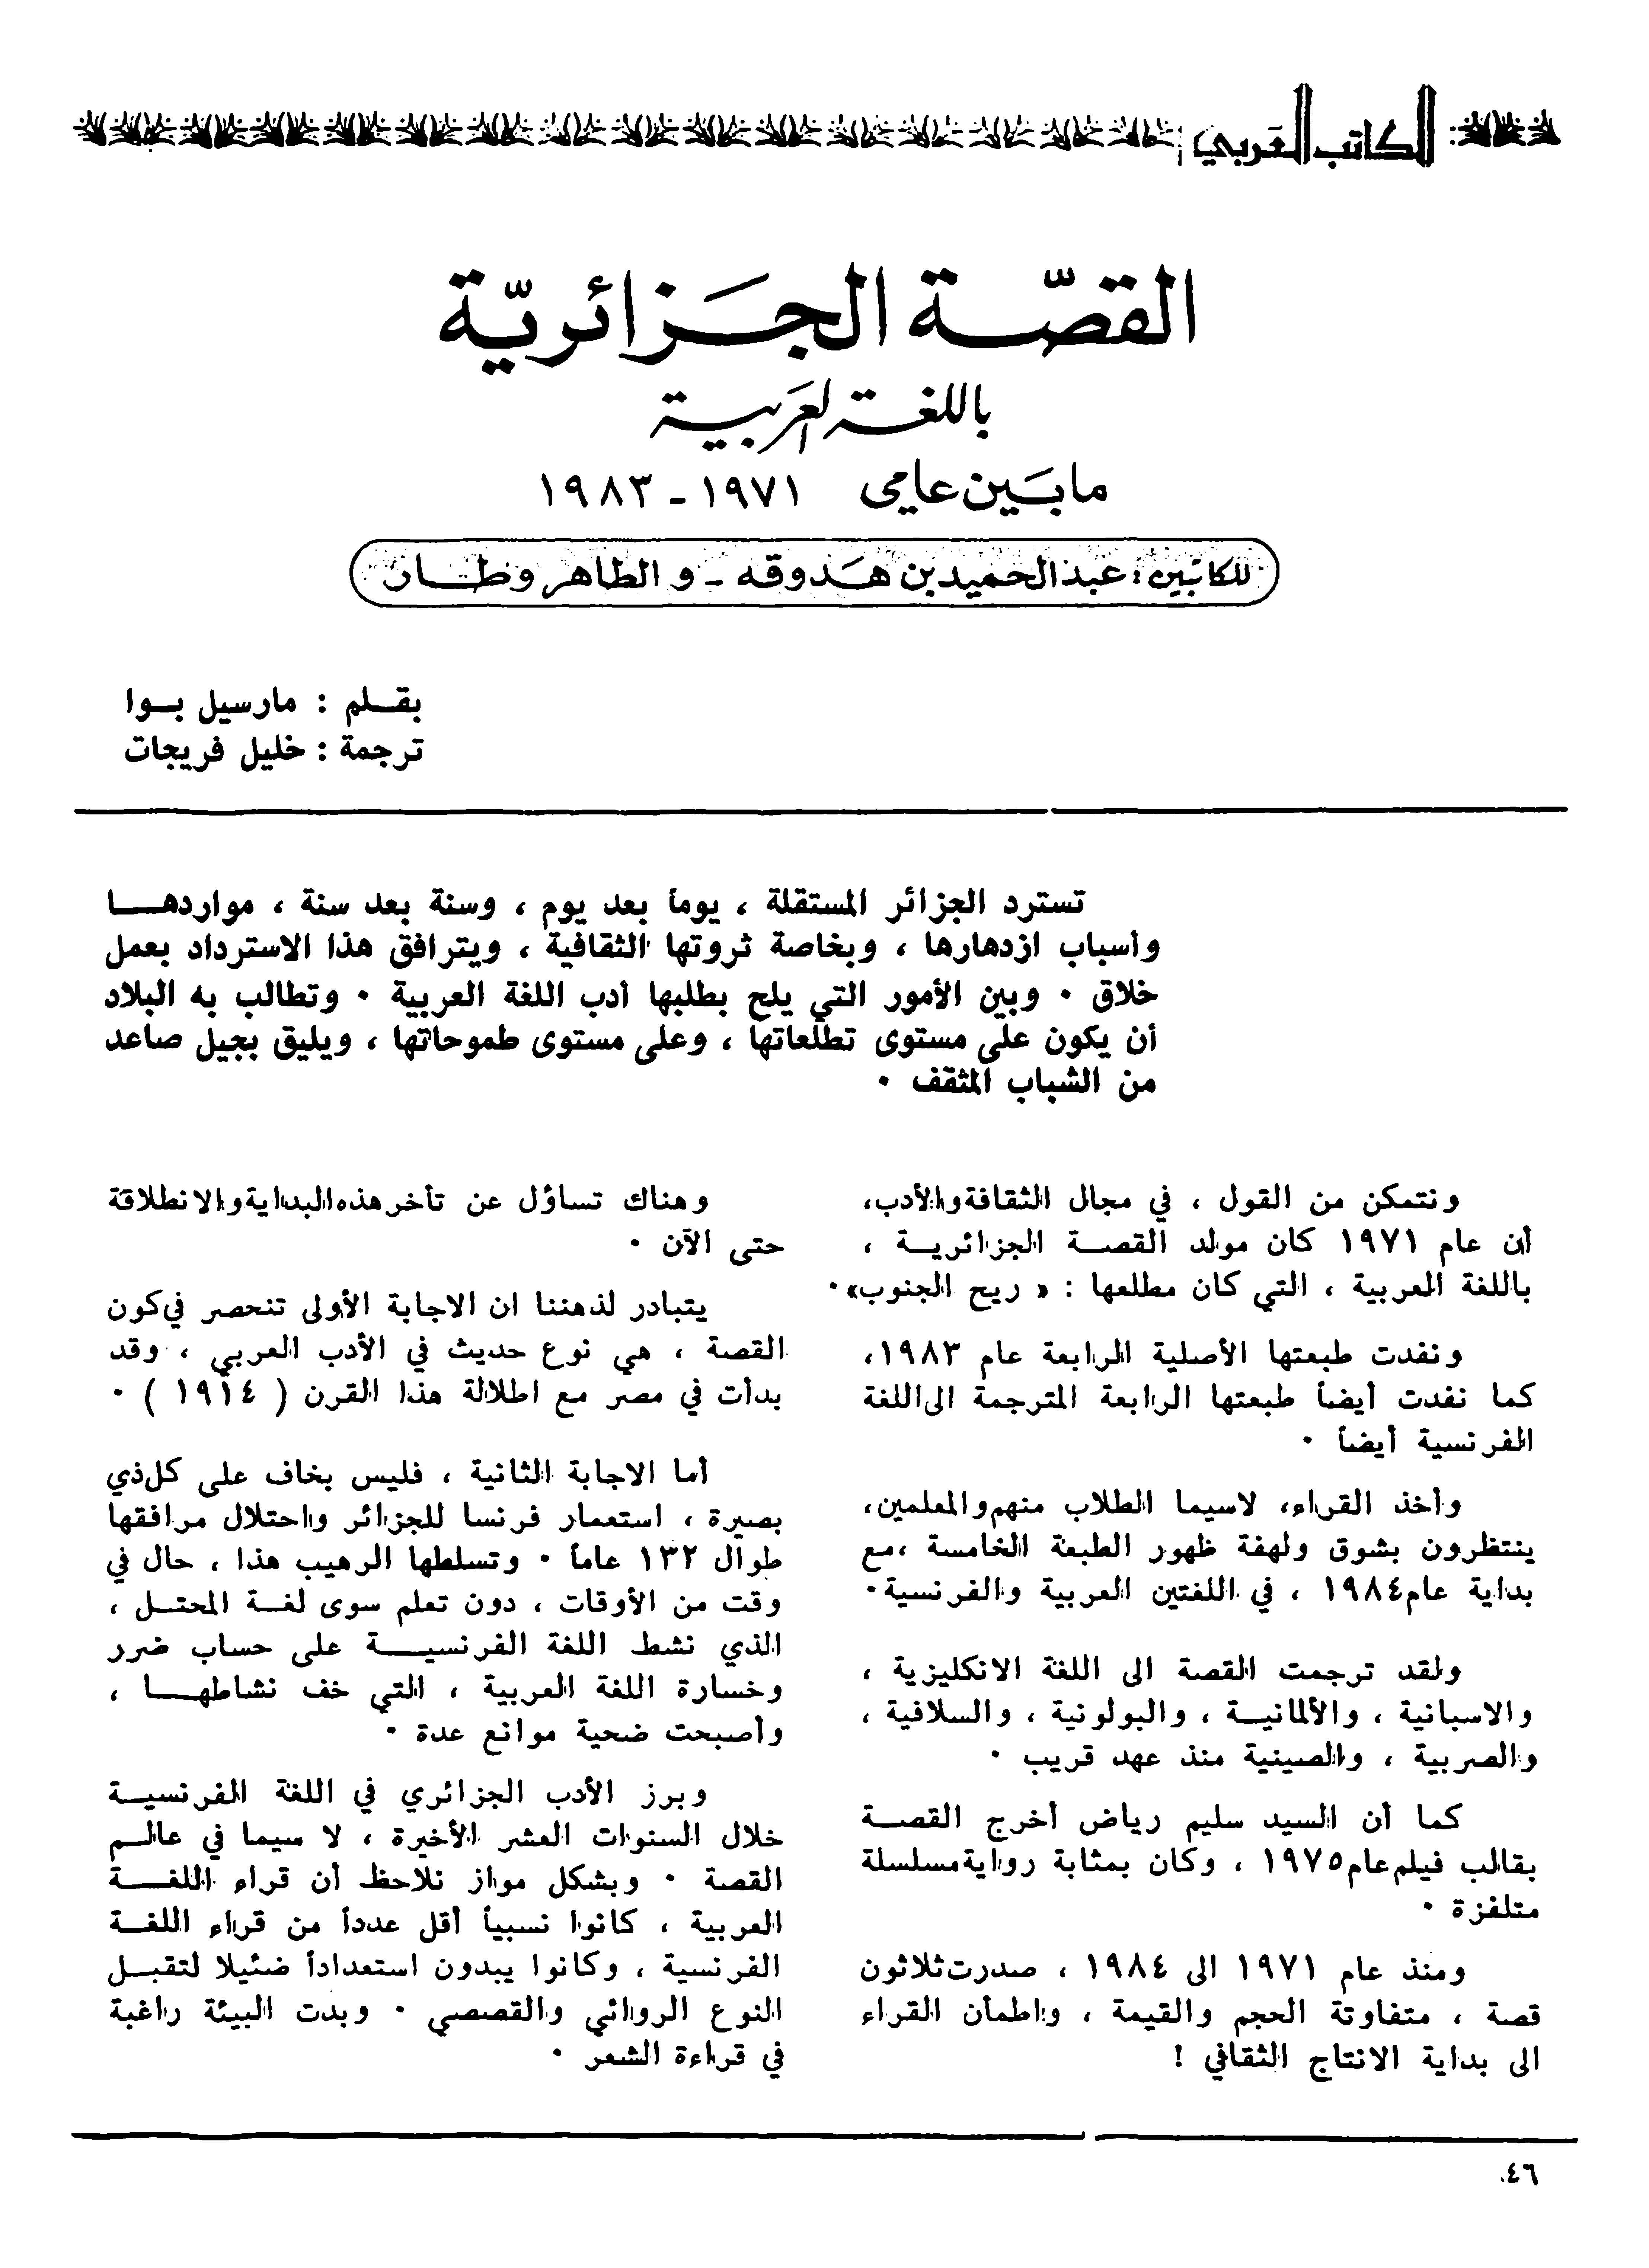 الكاتب العربي
القصّة الجزائريّة
باللغة العربية
ما بين عامي ١٩٧١ - ١٩٨٣
للكاتبين : عبد الحميد بن هدوقه - و الطاهر وطار
بقلم : مارسيل بوا
ترجمة : خليل فريجات
تسترد الجزائر المستقلة ، يوماً بعد يوم ، وسنة بعد سنة ، مواردها
وأسباب ازدهارها ، وبخاصة ثروتها الثقافية ، ويترافق هذا الاسترداد بعمل
خلاق . وبين الأمور التي يلح بطلبها أدب اللغة العربية . وتطالب به البلاد
أن يكون على مستوى تطلعاتها ، وعلى مستوى طموحاتها ، ويليق بجيل صاعد
من الشباب المثقف .
ونتمكن من القول ، في مجال الثقافة والأدب،
أن عام ١٩٧١ كان مولد القصة الجزائرية ،
باللغة العربية ، التي كان مطلعها : « ريح الجنوب» .
ونفدت طبعتها الأصلية الرابعة عام ١٩٨٣،
كما نفدت أيضاً طبعتها الرابعة المترجمة الى اللغة
الفرنسية أيضاً .
وأخذ القراء، لاسيما الطلاب منهم والمعلمين،
ينتظرون بشوق ولهفة ظهور الطبعة الخامسة ،مع
بداية عام ١٩٨٤ ، في اللغتين العربية والفرنسية .
ولقد ترجمت القصة الى اللغة الانكليزية ،
والاسبانية ، والألمانية ، والبولونية ، والسلافية ،
والصربية ، والصينية منذ عهد قريب .
كما أن السيد سليم رياض أخرج القصة
بقالب فيلم عام ١٩٧٥ ، وكان بمثابة رواية مسلسلة
متلفزة .
ومنذ عام ١٩٧١ الى ١٩٨٤ ، صدرت ثلاثون
قصة ، متفاوتة الحجم والقيمة ، واطمأن القراء
الى بداية الانتاج الثقافي !
وهناك تساؤل عن تأخر هذه البداية والانطلاقة
حتى الآن .
يتبادر لذهننا ان الاجابة الأولى تنحصر في كون
القصة ، هي نوع حديث في الأدب العربي ، وقد
بدأت في مصر مع اطلالة هذا القرن ( ١٩١٤ ) .
أما الاجابة الثانية ، فليس بخاف على كل ذي
بصيرة ، استعمار فرنسا للجزائر واحتلال مرافقها
طوال ١٣٢ عاماً . وتسلطها الرهيب هذا ، حال في
وقت من الأوقات ، دون تعلم سوى لغة المحتل ،
الذي نشط اللغة الفرنسية على حساب ضرر
وخسارة اللغة العربية ، التي خف نشاطها ،
وأصبحت ضحية موانع عدة .
وبرز الأدب الجزائري في اللغة الفرنسية
خلال السنوات العشر الأخيرة ، لا سيما في عالم
القصة . وبشكل مواز نلاحظ أن قراء اللغة
العربية ، كانوا نسبياً أقل عدداً من قراء اللغة
الفرنسية ، وكانوا يبدون استعداداً ضئيلا لتقبل
النوع الروائي والقصصي . وبدت البيئة راغبة
في قراءة الشعر .
٤٦